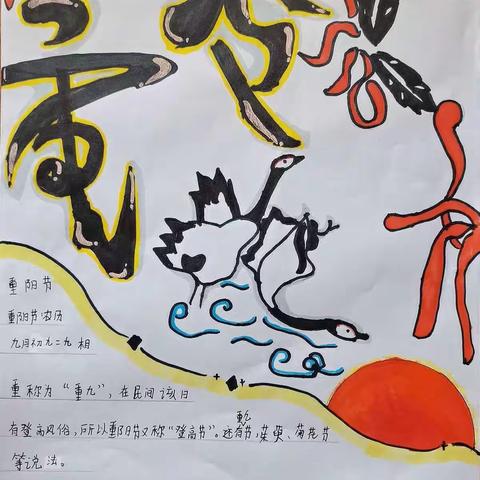 重
节
重阳节
重阳节农历
九月初九二九相
重称为“重九”，在民间该日
有登高风俗，所以重阳节又称“登高节”。还有重九节，茱萸、菊花节
等说法。